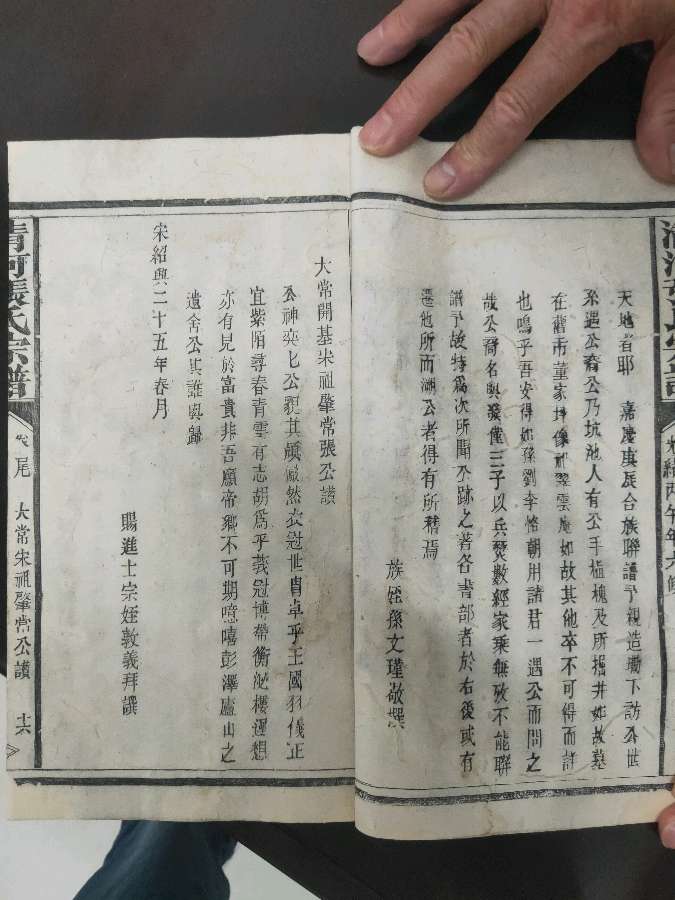 光緒丙午年六修
天地者耶 嘉慶庚辰合族聯譜予親造墈下訪公世
系遇公裔公乃坑池人有公手植槐及所掘井如故墓
在舊市董家坪像祀翠雲庵如故其他卒不可得而詳
也嗚乎吾安得如孫劉李脩朝用諸君一遇公而問之
哉公裔名與發僅三子以兵燹數經家乘無攷不能聯
譜予故特為次所聞公跡之著各書部者於右後或有
遷他所而溯公者得有所稽焉
族姪孫文瑾敬撰
大常開基宋祖肇常張公讚
公神奕匕公貌其頎儼然衣冠世胄卓乎王國羽儀正
宜紫陌尋春青雲有志胡為乎義冠博帶衡泌棲遲想
亦有見於富貴非吾願帝鄉不可期噫嘻彭澤廬山之
遺舍公其誰與歸
宋紹興二十五年春月
賜進士宗姪敦義拜譔
清河張氏宗譜
卷尾 大常宋祖肇常公讚 十六